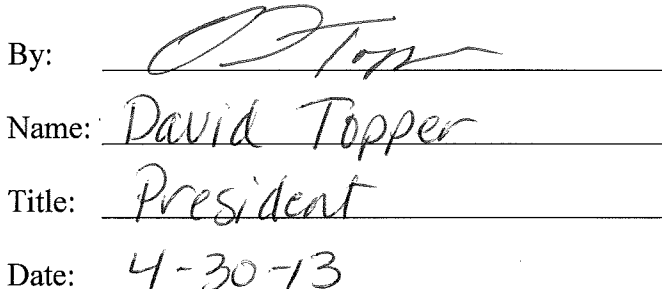 By: D Topper
Name: David Topper
Title: President
Date: 4-30-13